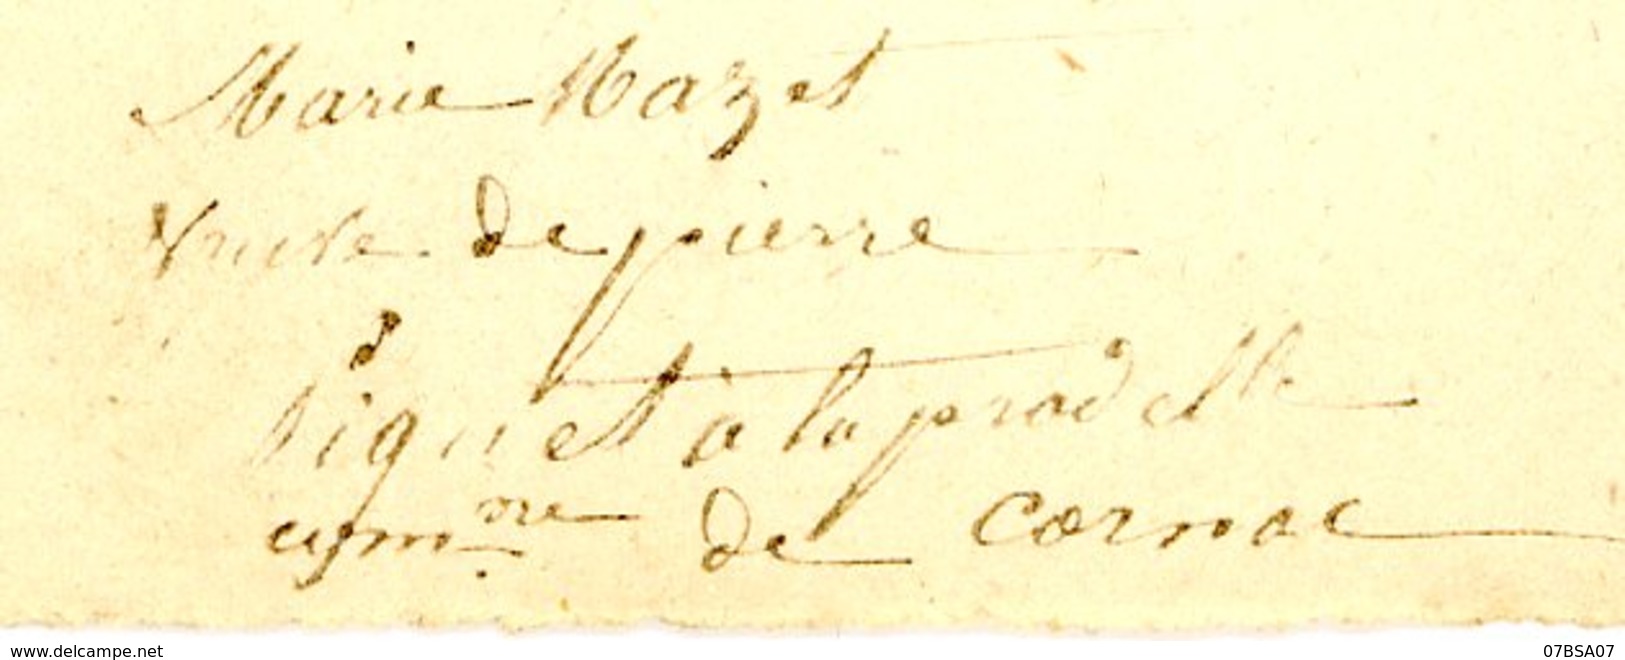 Marie Mazet
veuve de pierre
piquet à la pradelle
comm.ne de cornac
www.delcampe.net
07BSA07